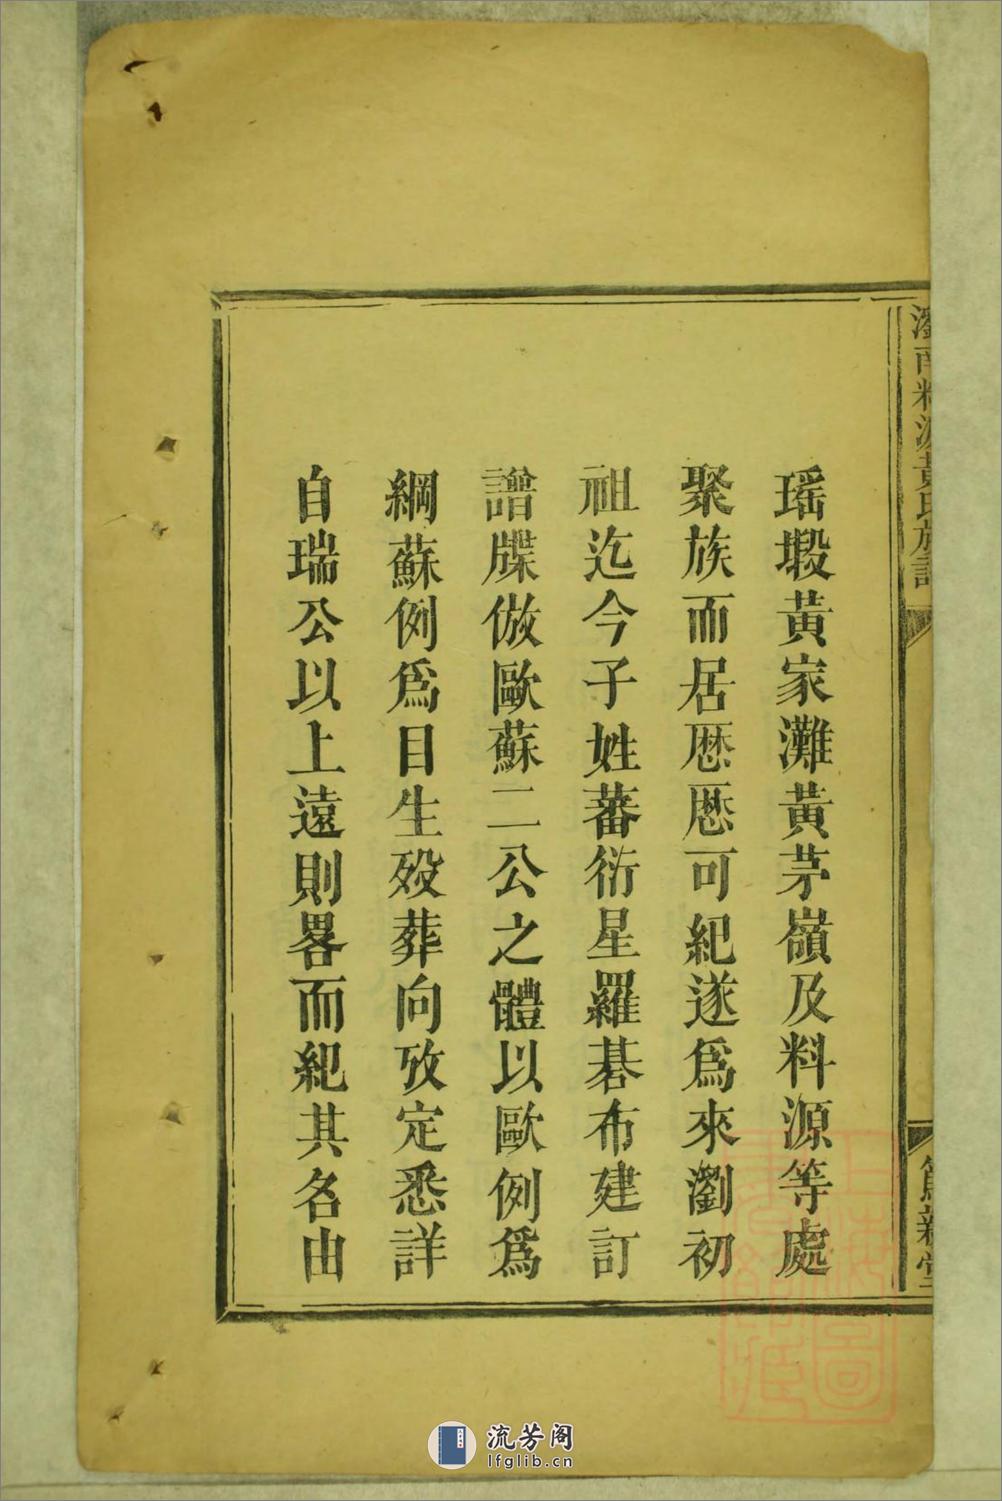 瀏南料源黃氏族譜
篤親堂
瑶塅黃家灘黃茅嶺及料源等處
聚族而居厯厯可紀遂爲來瀏初
祖迄今子姓蕃衍星羅碁布建訂
譜牒倣歐蘇二公之體以歐例爲
綱蘇例爲目生殁葬向攷定悉詳
自瑞公以上遠則畧而紀其名由
上海圖書館藏
流芳阁
lfglib.cn